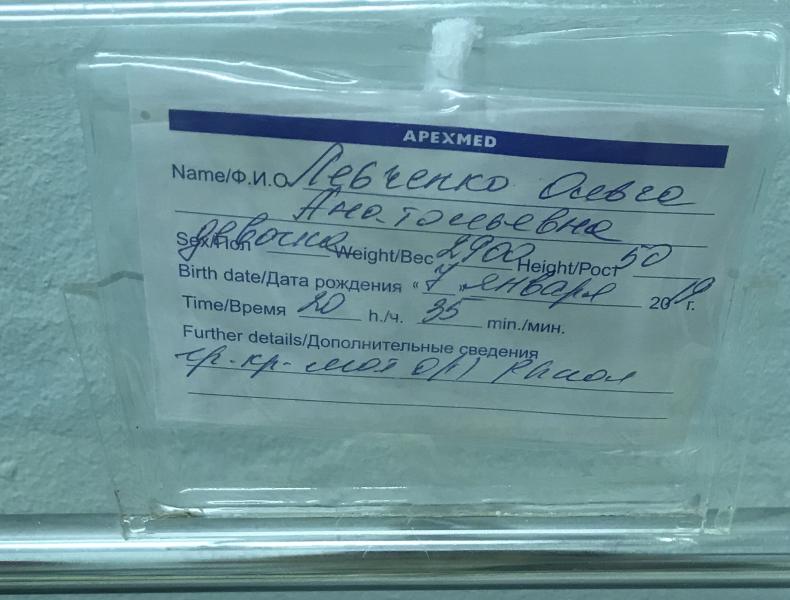 APEXMED
Name/Ф.И.О Левченко Ольга
Анатольевна
Sex/Пол девочка Weight/Вес 2900 Height/Рост 50
Birth date/Дата рождения « 7 » января 2019 г.
Time/Время 20 h./ч. 35 min./мин.
Further details/Дополнительные сведения
гр. кр. мат 0(I)